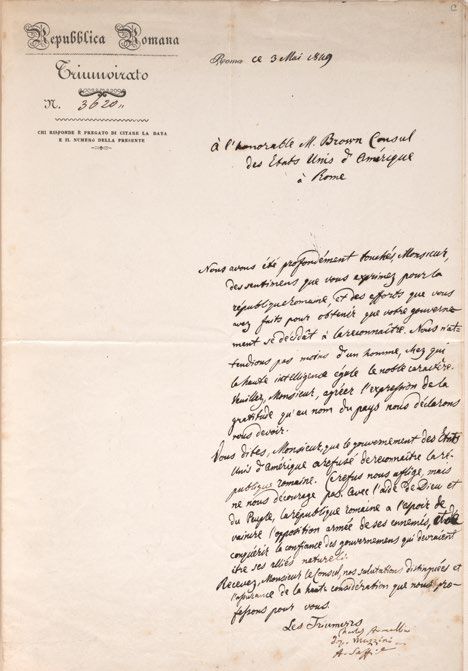 C
Repubblica Romana
Triumvirato
N. 3620
CHI RISPONDE È PREGATO DI CITARE LA DATA
E IL NUMERO DELLA PRESENTE
Roma ce 3 Mai 1849
à l'honorable M. Brown Consul
des Etats Unis d'Amérique
à Rome
Nous avons été profondément touchés, Monsieur,
des sentimens que vous exprimez pour la
république romaine, et des efforts que vous
avez faits pour obtenir que votre gouverne
ment se décidât à la reconnaître. Nous n'at
tendions pas moins d'un homme, chez qui
la haute intelligence égale le noble caractère.
Veuillez, Monsieur, agréer l'expression de la
gratitude qu'au nom du pays nous déclarons
vous devoir.
Vous dites, Monsieur, que le gouvernement des Etats
Unis d'Amérique a refusé de reconnaître la ré
publique romaine. Ce refus nous afflige, mais
ne nous décourage pas. Avec l'aide de Dieu et
du Peuple, la république romaine a l'espoir de
vaincre l'opposition armée de ses ennemis, et de
conquérir la confiance des gouvernemens qui devraient
être ses alliés naturels.
Recevez, Monsieur le Consul, nos salutations distinguées et
l'assurance de la haute considération que nous pro
fessons pour vous.
Les Triumvirs
Charles Armellini
Jos. Mazzini
A. Saffi